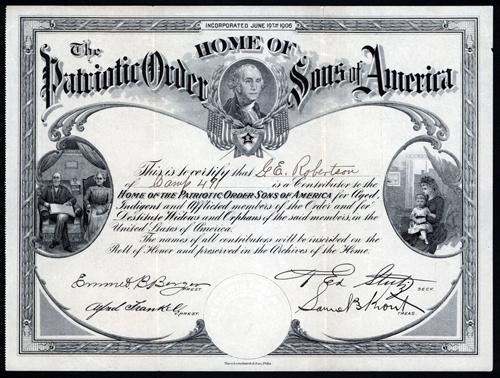 INCORPORATED JUNE 19TH 1906
HOME OF
The Patriotic Order Sons of America
This is to certify that G.E. Robertson
of Camp 491 is a Contributor to the
HOME OF THE PATRIOTIC ORDER SONS OF AMERICA for Aged,
Indigent and Afflicted members of the Order and for
Destitute Widows and Orphans of the said members, in the
United States of America.
The names of all contributors will be inscribed on the
Roll of Honor and preserved in the Archives of the Home.
PREST.
SECY.
V. PREST.
TREAS.